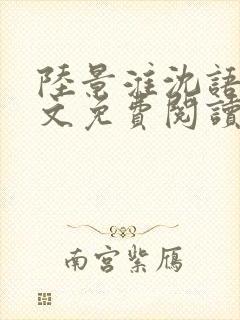 陸景淮沈語
文免費閱讀
南宮紫雁